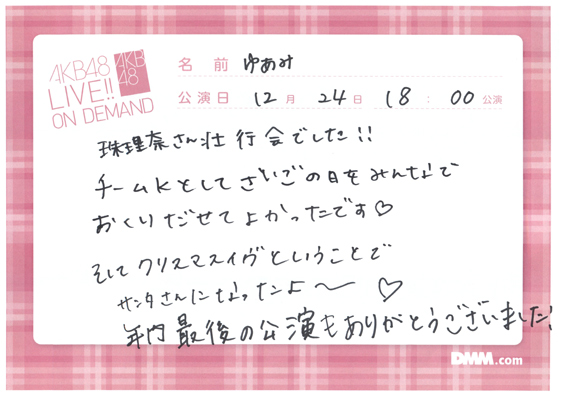 AKB48
LIVE!!
ON DEMAND
AKB
48
名前 ゆあみ
公演日 12月 24日 18:00公演
珠理奈さん壮行会でした!!
チームKとしてさいごの日をみんなで
おくりだせてよかったです♡
そしてクリスマスイヴということで
サンタさんになったよ〜 ♡
年内最後の公演もありがとうございました!
DMM.com